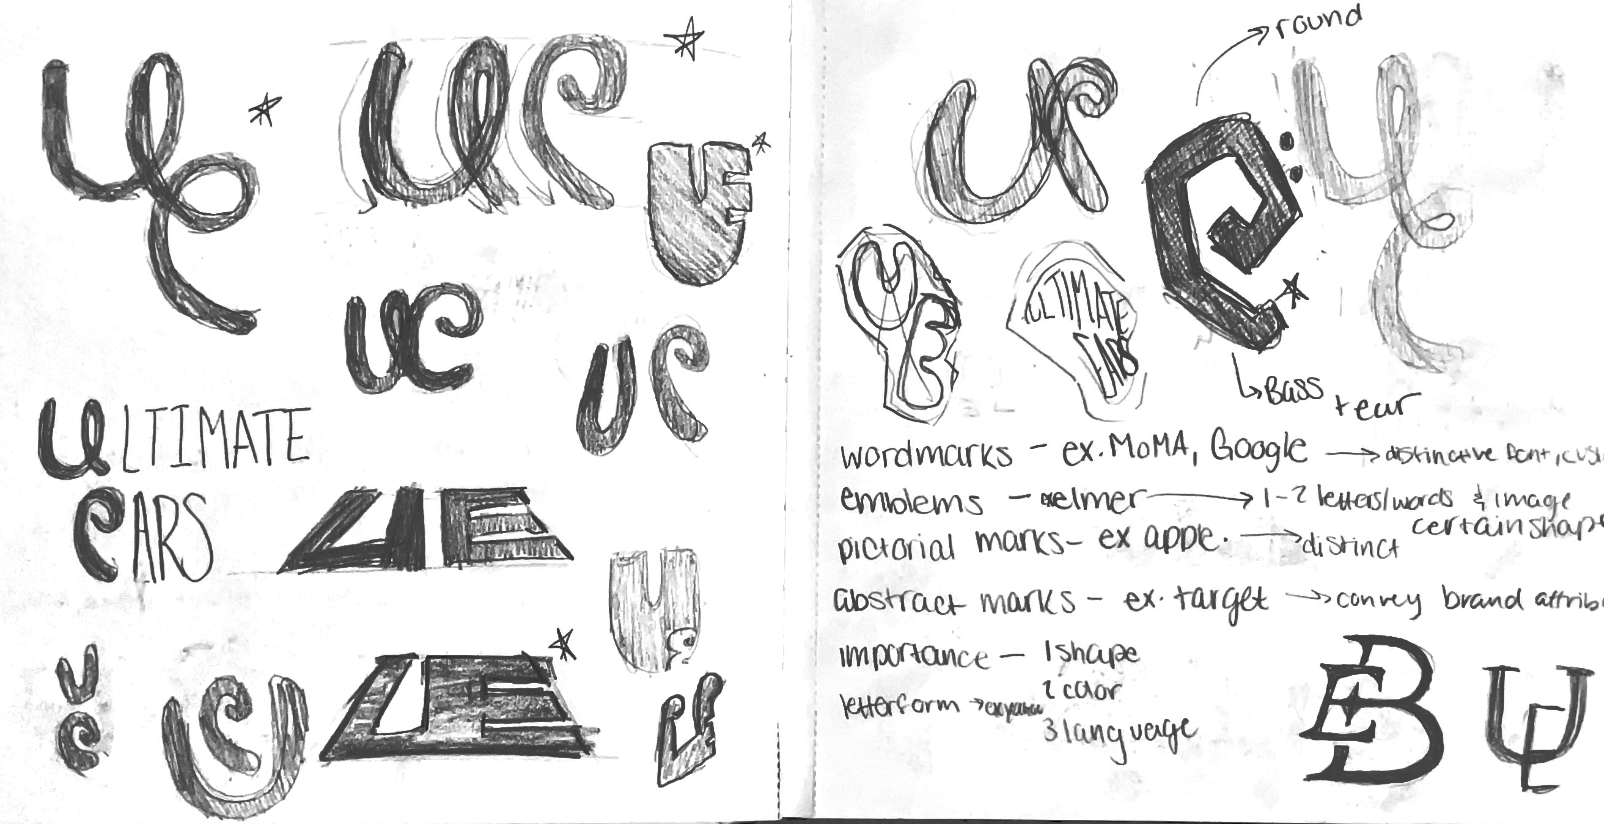 ue
ue
UE
ue
ue
ULTIMATE
eARS
UE
U
ue
ue
UE
UE
round
ue
e
ue
UE
ULTIMATE
EARS
Bass
+ ear
wordmarks - ex. MoMA, Google → distinctive font,
emblems - elmer → 1-2 letters/words & image
certain shape
pictorial marks - ex apple. → distinct
abstract marks - ex. target → convey brand
importance - 1 shape
2 color
letterform →
3 language
EB
UE